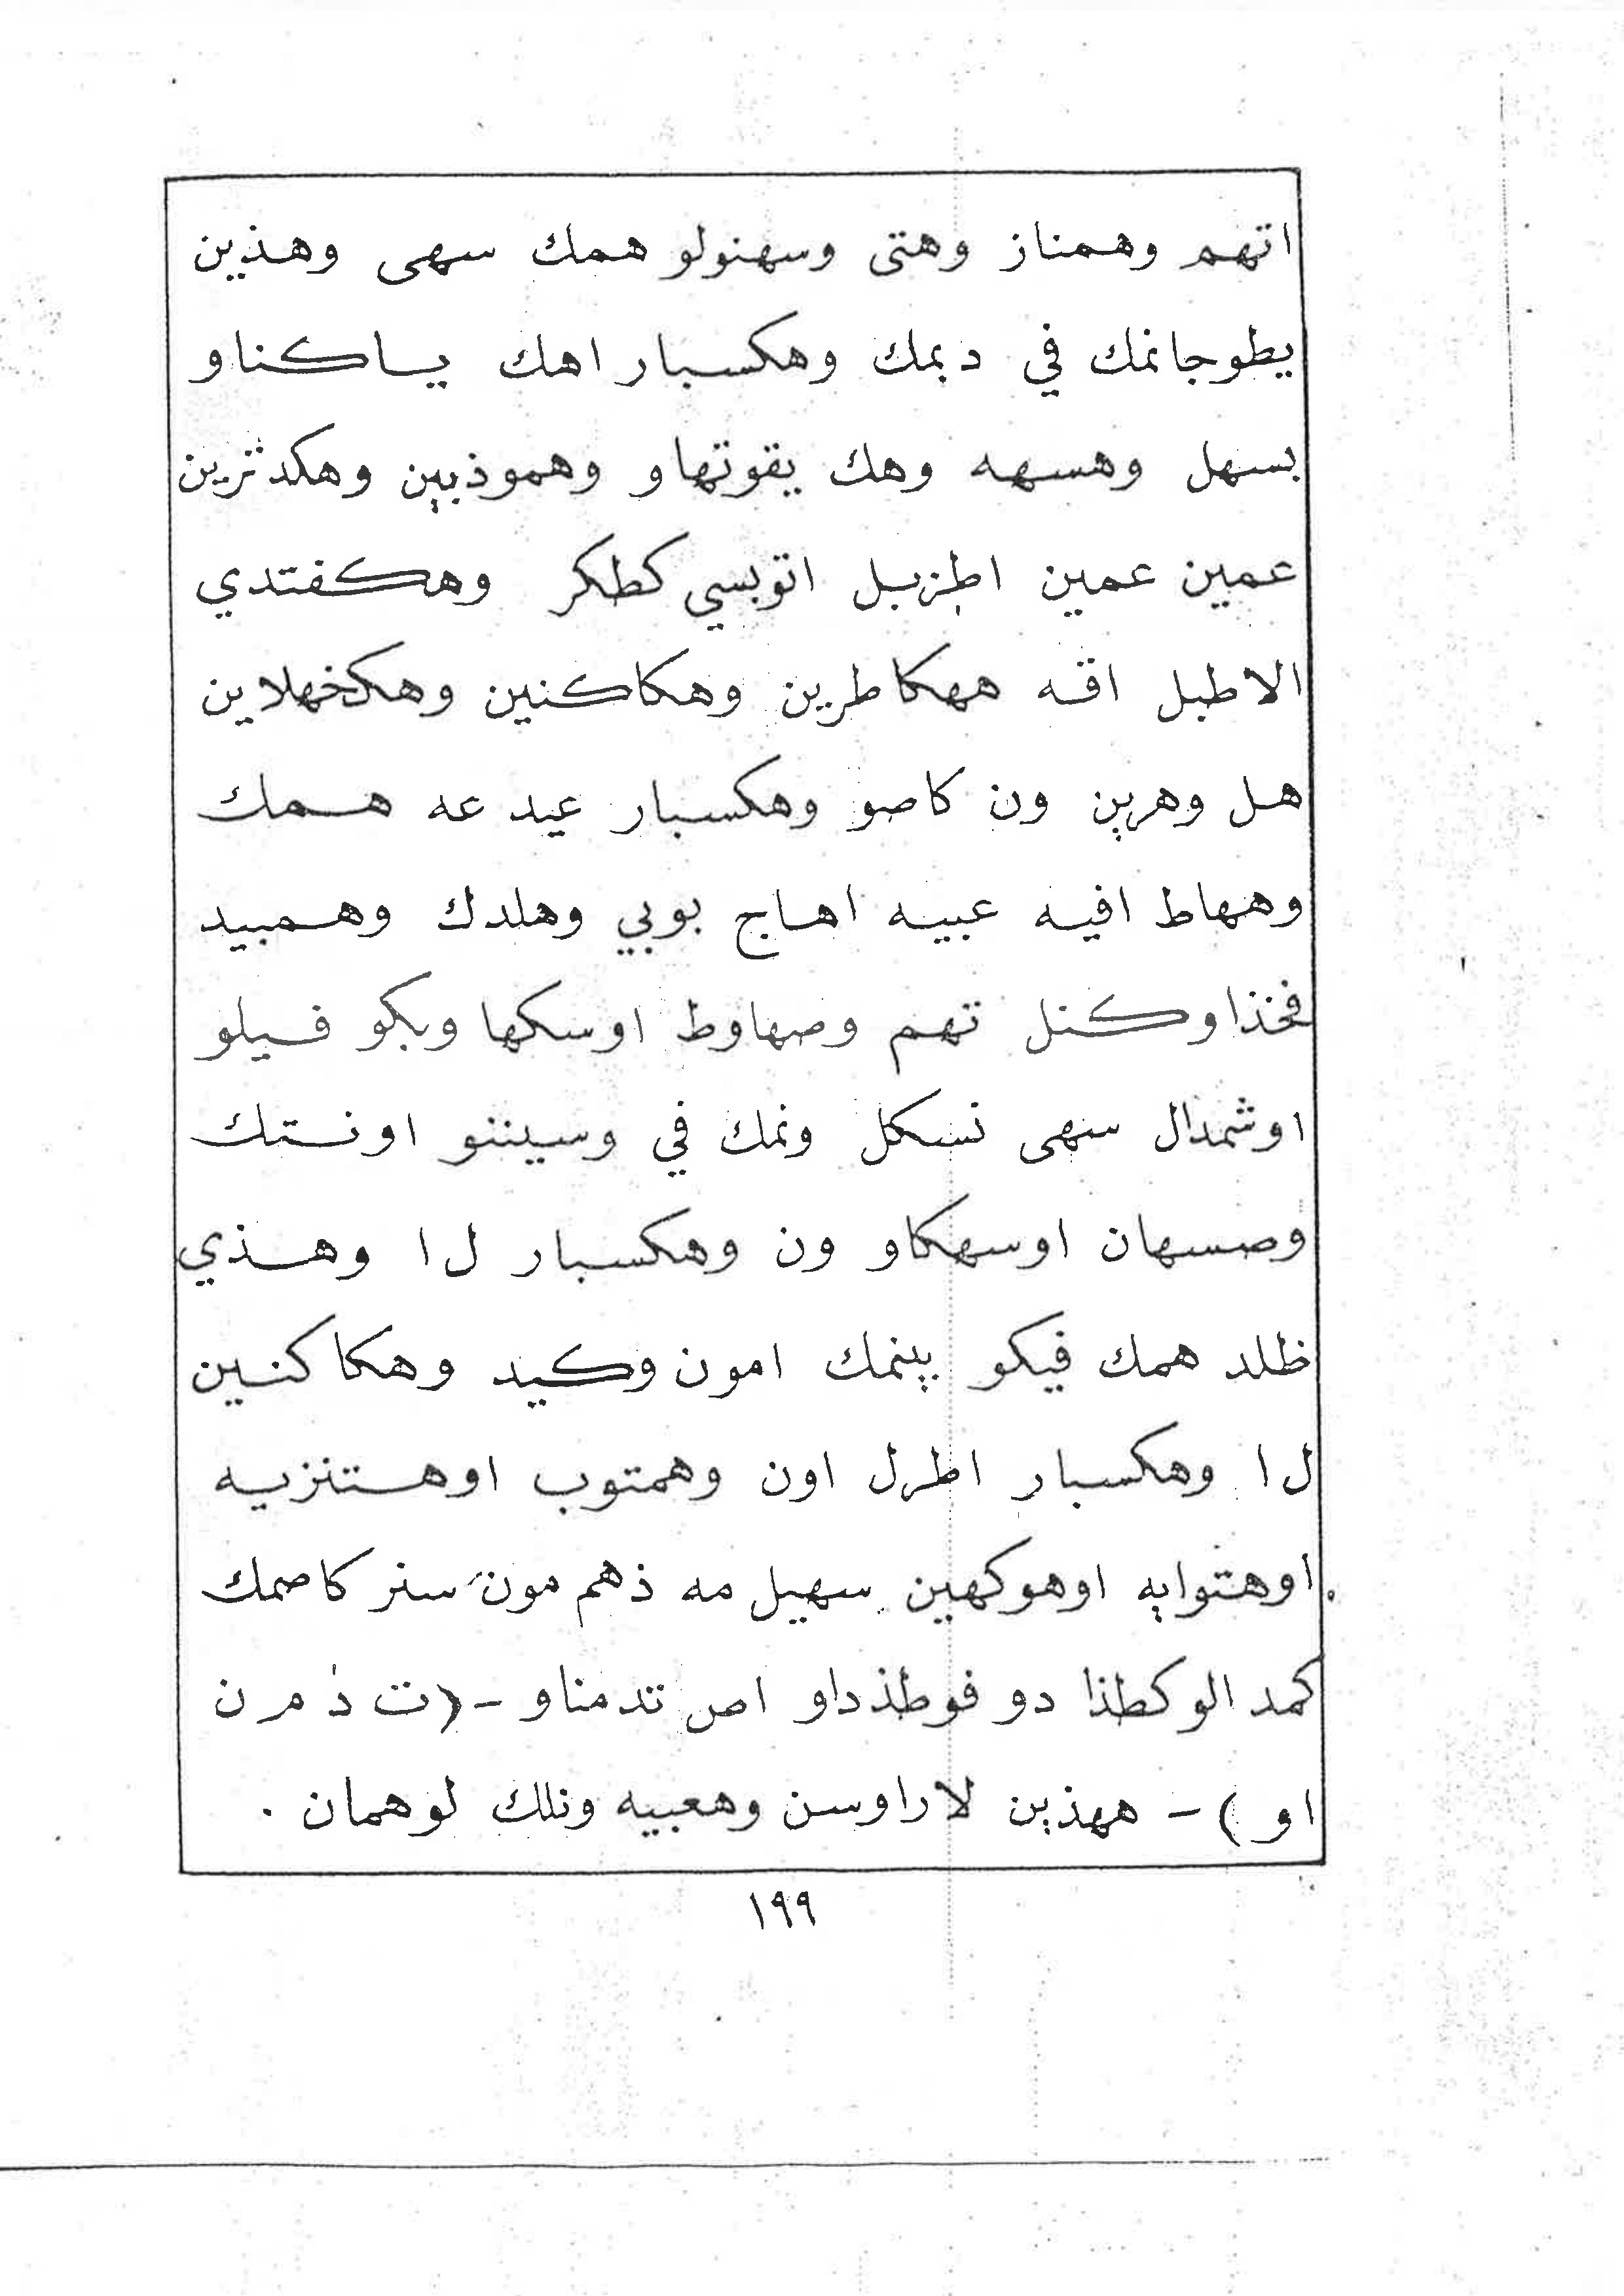 اتهم وهمناز وهتى وسهنولو همك سهى وهذين
يطوجانمك في دبمك وهكسبار اهك ياكناو
بسهل وهسهه وهك يقوتهاو وهموذبين وهكدثرين
عمين عمين اطزبل اتوبسي كطكر وهكفتدي
الاطبل اقه ههكاطرين وهكاكنين وهكخهلاين
هل وهرين ون كاصو وهكسبار عيد عه همك
وههاط افيه عبيه اهاج بوبي وهلدك وهمبيد
فخذاوكنل تهم وصهاوط اوسكها وبكو فيلو
اوشمدال سهى نسكل ونمك في وسيننو اونستك
وصسهان اوسهكاو ون وهكسبار ل ا وهذي
ظلد همك فيكو بينمك امون وكيد وهكاكنين
ل ا وهكسبار اطرل اون وهمتوب اوهستنزيه
اوهتوابه اوهوكهين سهيل مه ذهم مون سنر كاصمك
كمد الوكطذا دو فوطذداو اص تدمناو - (ت ذ م ر ن
او) - ههذين لاراوسن وهعبيه ونلك لوهمان .
١٩٩